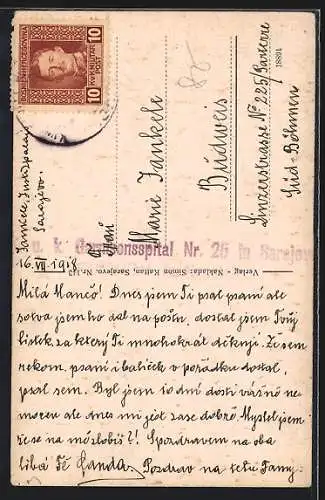 BOSNIEN HERCEGOVINA
10 10
K.u.K. MILITÄR POST
Jankele,
Sarajevo.
Paní
Marie Jankele
Budweis
Linzerstrasse No 225/
Süd-Böhmen
18891
u. k. Garnisonsspital Nr. 26 in Sarajevo
Verlag - Naklada: Simon Kattan, Sarajevo. Nr. 143
16. VII. 1918
Milá Mančo! Dnes jsem Ti psal psaní ale
sotva jsem ho dal na poštu, dostal jsem Tvůj
lístek, za který Ti mnohokrát děkuji. Že sem
rekom. psaní i balíček v pořádku dostal,
psal sem. Byl jsem 10 dní dosti vážně ne-
mocen ale dnes mi jest zase dobře. Myslel jsem
že se na mě zlobíš?! S pozdravem na oba
líbá Tě Landa. Pozdrav na tetu Fanny.